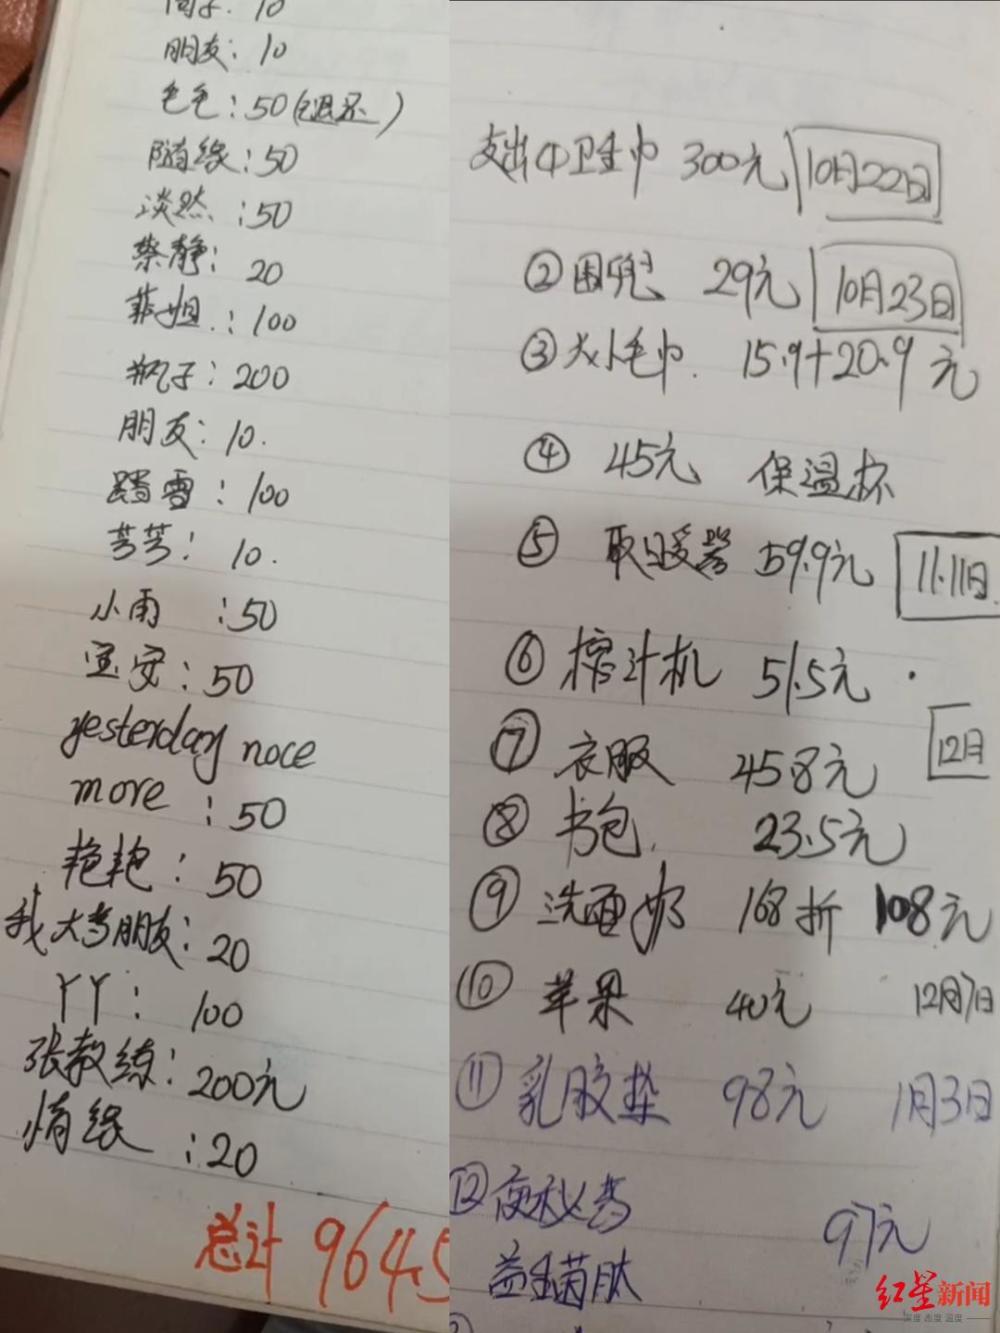 朋友：10
毛毛：50（退还）
随缘：50
淡然：50
蔡静：20
菲姐：100
瓶子：200
朋友：10.
踏雪：100
芳芳：10.
小雨：50
宜安：50
yesterday noce
more：50
艳艳：50
我大李朋友：20
丫丫：100
张教练：200元
情缘：20
总计 9645
支出①卫生巾 300元 10月22日
②围兜 29元 10月23日
③大小毛巾. 15.9+20.9元
④ 45元 保温杯
⑤ 取暖器 59.9元 11.11日
⑥ 榨汁机 51.5元
12月
⑦ 衣服 45.8元
⑧ 书包. 23.5元
⑨ 洗面奶 168折 108元
⑩ 苹果 40元 12月7日
⑪ 乳胶垫 98元 1月3日
⑫ 便秘茶
益生菌肽 97元
红星新闻
深度 态度 温度